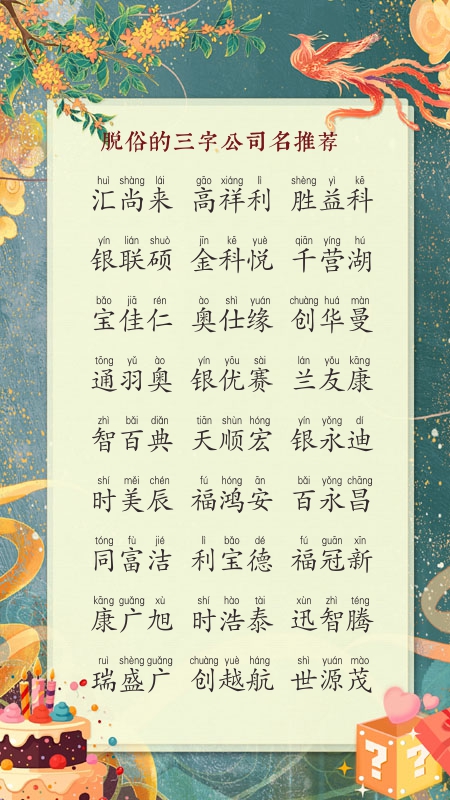 脱俗的三字公司名推荐
huì shàng lái gāo xiáng lì shèng yì kē
汇尚来 高祥利 胜益科
yín lián shuò jīn kē yuè qiān yíng hú
银联硕 金科悦 千营湖
bǎo jiā rén ào shì yuán chuàng huá màn
宝佳仁 奥仕缘 创华曼
tōng yǔ ào yín yōu sài lán yǒu kāng
通羽奥 银优赛 兰友康
zhì bǎi diǎn tiān shùn hóng yín yǒng dí
智百典 天顺宏 银永迪
shí měi chén fú hóng ān bǎi yǒng chāng
时美辰 福鸿安 百永昌
tóng fù jié lì bǎo dé fú guān xīn
同富洁 利宝德 福冠新
kāng guǎng xù shí hào tài xùn zhì téng
康广旭 时浩泰 迅智腾
ruì shèng guǎng chuàng yuè háng shì yuán mào
瑞盛广 创越航 世源茂
? ?